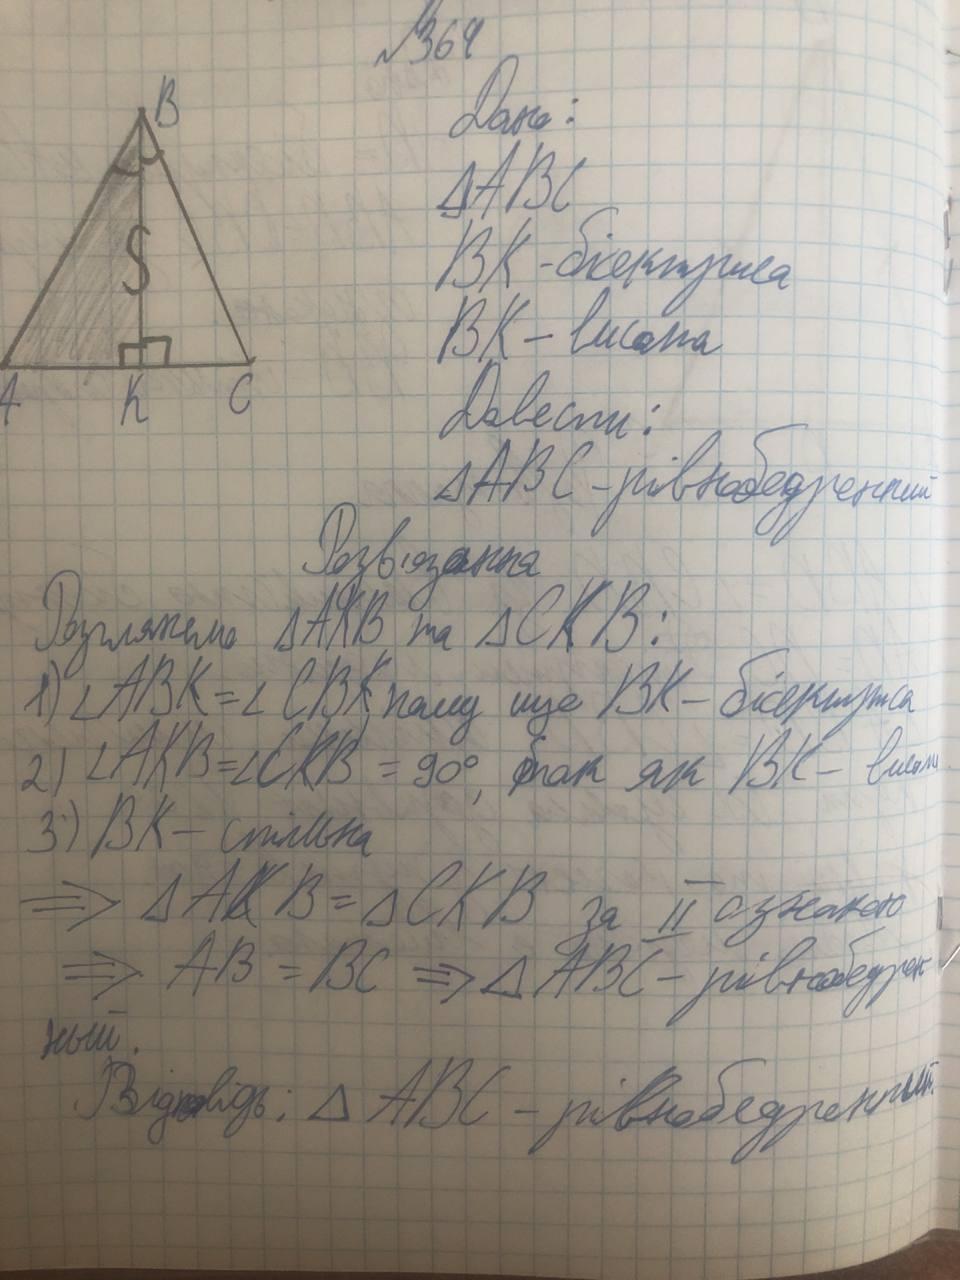 №364
B
A K C
Дано:
△ABC
BK - бісектриса
BK - висота
Довести:
△ABC - рівнобедренний
Розв'язання
Розглянемо △AKB та △CKB:
1) ∠ABK = ∠CBK, тому що BK - бісектриса
2) ∠AKB = ∠CKB = 90°, так як BK - висота
3) BK - спільна
⇒ △AKB = △CKB за II ознакою
⇒ AB = BC ⇒ △ABC - рівнобедрен
ный.
Відповідь: △ABC - рівнобедренный